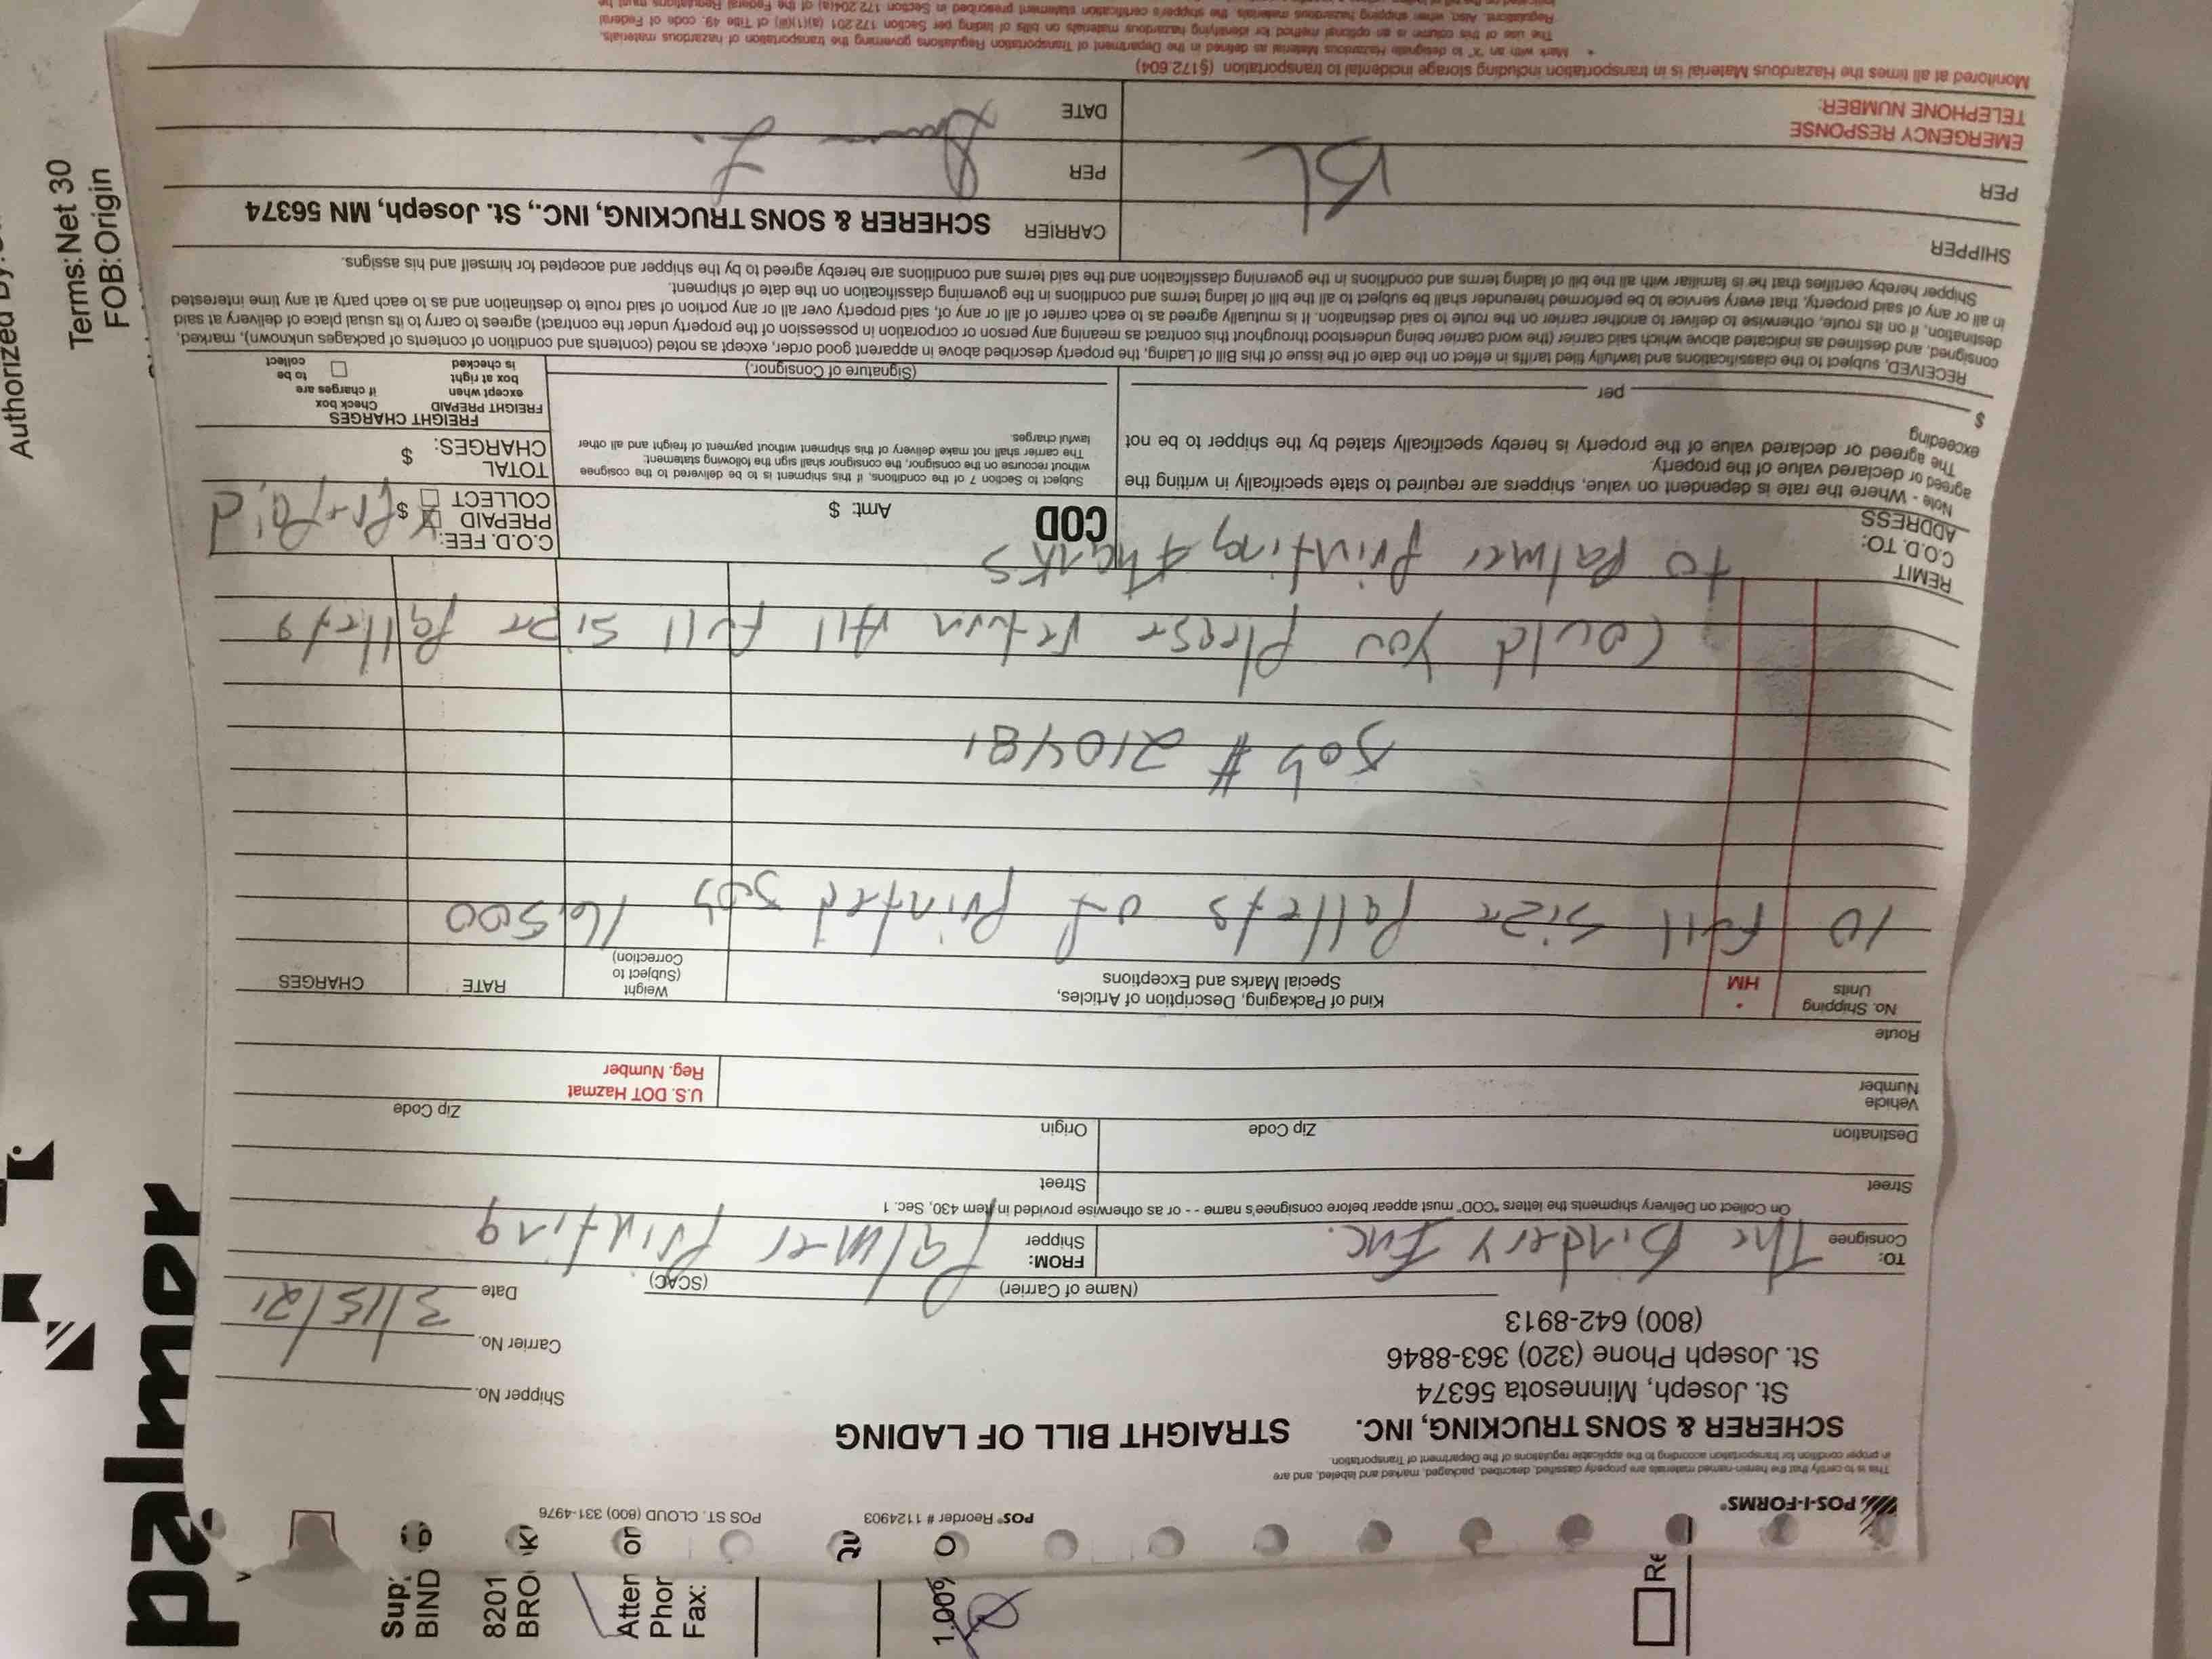 POS-I-FORMS®
POS® Reorder # 1124903
POS ST. CLOUD (800) 331-4976
This is to certify that the herein-named materials are properly classified, described, packaged, marked and labeled, and are
in proper condition for transportation according to the applicable regulations of the Department of Transportation.
SCHERER & SONS TRUCKING, INC.
STRAIGHT BILL OF LADING
St. Joseph, Minnesota 56374
St. Joseph Phone (320) 363-8846
(800) 642-8913
Shipper No.
Carrier No.
Date 3/15/21
(Name of Carrier)
(SCAC)
TO:
Consignee The Bindery Inc.
FROM:
Shipper Palmer Printing
On Collect on Delivery shipments the letters "COD" must appear before consignee's name - - or as otherwise provided in Item 430, Sec. 1
Street
Street
Destination
Zip Code
Origin
Zip Code
Vehicle
Number
U.S. DOT Hazmat
Reg. Number
Route
No. Shipping
Units
*
HM
Kind of Packaging, Description of Articles,
Special Marks and Exceptions
Weight
(Subject to
Correction)
RATE
CHARGES
10 Full size Pallets of printed Job 16,500
Job # 210481
Could you please return All full size pallets
to Palmer Printing thanks
REMIT
C.O.D. TO:
ADDRESS
COD
Amt: $
C.O.D. FEE:
PREPAID
COLLECT
$
Pre-Paid
Note - Where the rate is dependent on value, shippers are required to state specifically in writing the
agreed or declared value of the property.
The agreed or declared value of the property is hereby specifically stated by the shipper to be not
exceeding
$
per
Subject to Section 7 of the conditions, if this shipment is to be delivered to the cosignee
without recourse on the consignor, the consignor shall sign the following statement:
The carrier shall not make delivery of this shipment without payment of freight and all other
lawful charges.
(Signature of Consignor.)
TOTAL
CHARGES: $
FREIGHT CHARGES
FREIGHT PREPAID
except when
box at right
is checked
Check box
if charges are
to be
collect
RECEIVED, subject to the classifications and lawfully filed tariffs in effect on the date of the issue of this Bill of Lading, the property described above in apparent good order, except as noted (contents and condition of contents of packages unknown), marked,
consigned, and destined as indicated above which said carrier (the word carrier being understood throughout this contract as meaning any person or corporation in possession of the property under the contract) agrees to carry to its usual place of delivery at said
destination, if on its route, otherwise to deliver to another carrier on the route to said destination. It is mutually agreed as to each carrier of all or any of, said property over all or any portion of said route to destination and as to each party at any time interested
in all or any of said property, that every service to be performed hereunder shall be subject to all the bill of lading terms and conditions in the governing classification on the date of shipment.
Shipper hereby certifies that he is familiar with all the bill of lading terms and conditions in the governing classification and the said terms and conditions are hereby agreed to by the shipper and accepted for himself and his assigns.
SHIPPER
CARRIER SCHERER & SONS TRUCKING, INC., St. Joseph, MN 56374
PER BL
PER
EMERGENCY RESPONSE
TELEPHONE NUMBER:
DATE
Monitored at all times the Hazardous Material is in transportation including storage incidental to transportation (§172.604)
* Mark with an "X" to designate Hazardous Material as defined in the Department of Transportation Regulations governing the transportation of hazardous materials.
The use of this column is an optional method for identifying hazardous materials on bills of lading per Section 172.201 (a)(1)(iii) of Title 49, code of Federal
Regulations. Also, when shipping hazardous materials, the shipper's certification statement prescribed in Section 172.204(a) of the Federal Regulations must be
palmer
Terms:Net 30
FOB:Origin
Authorized By:
Sup
BIND
8201
BRO
Atten
Phor
Fax:
1.00%
Re